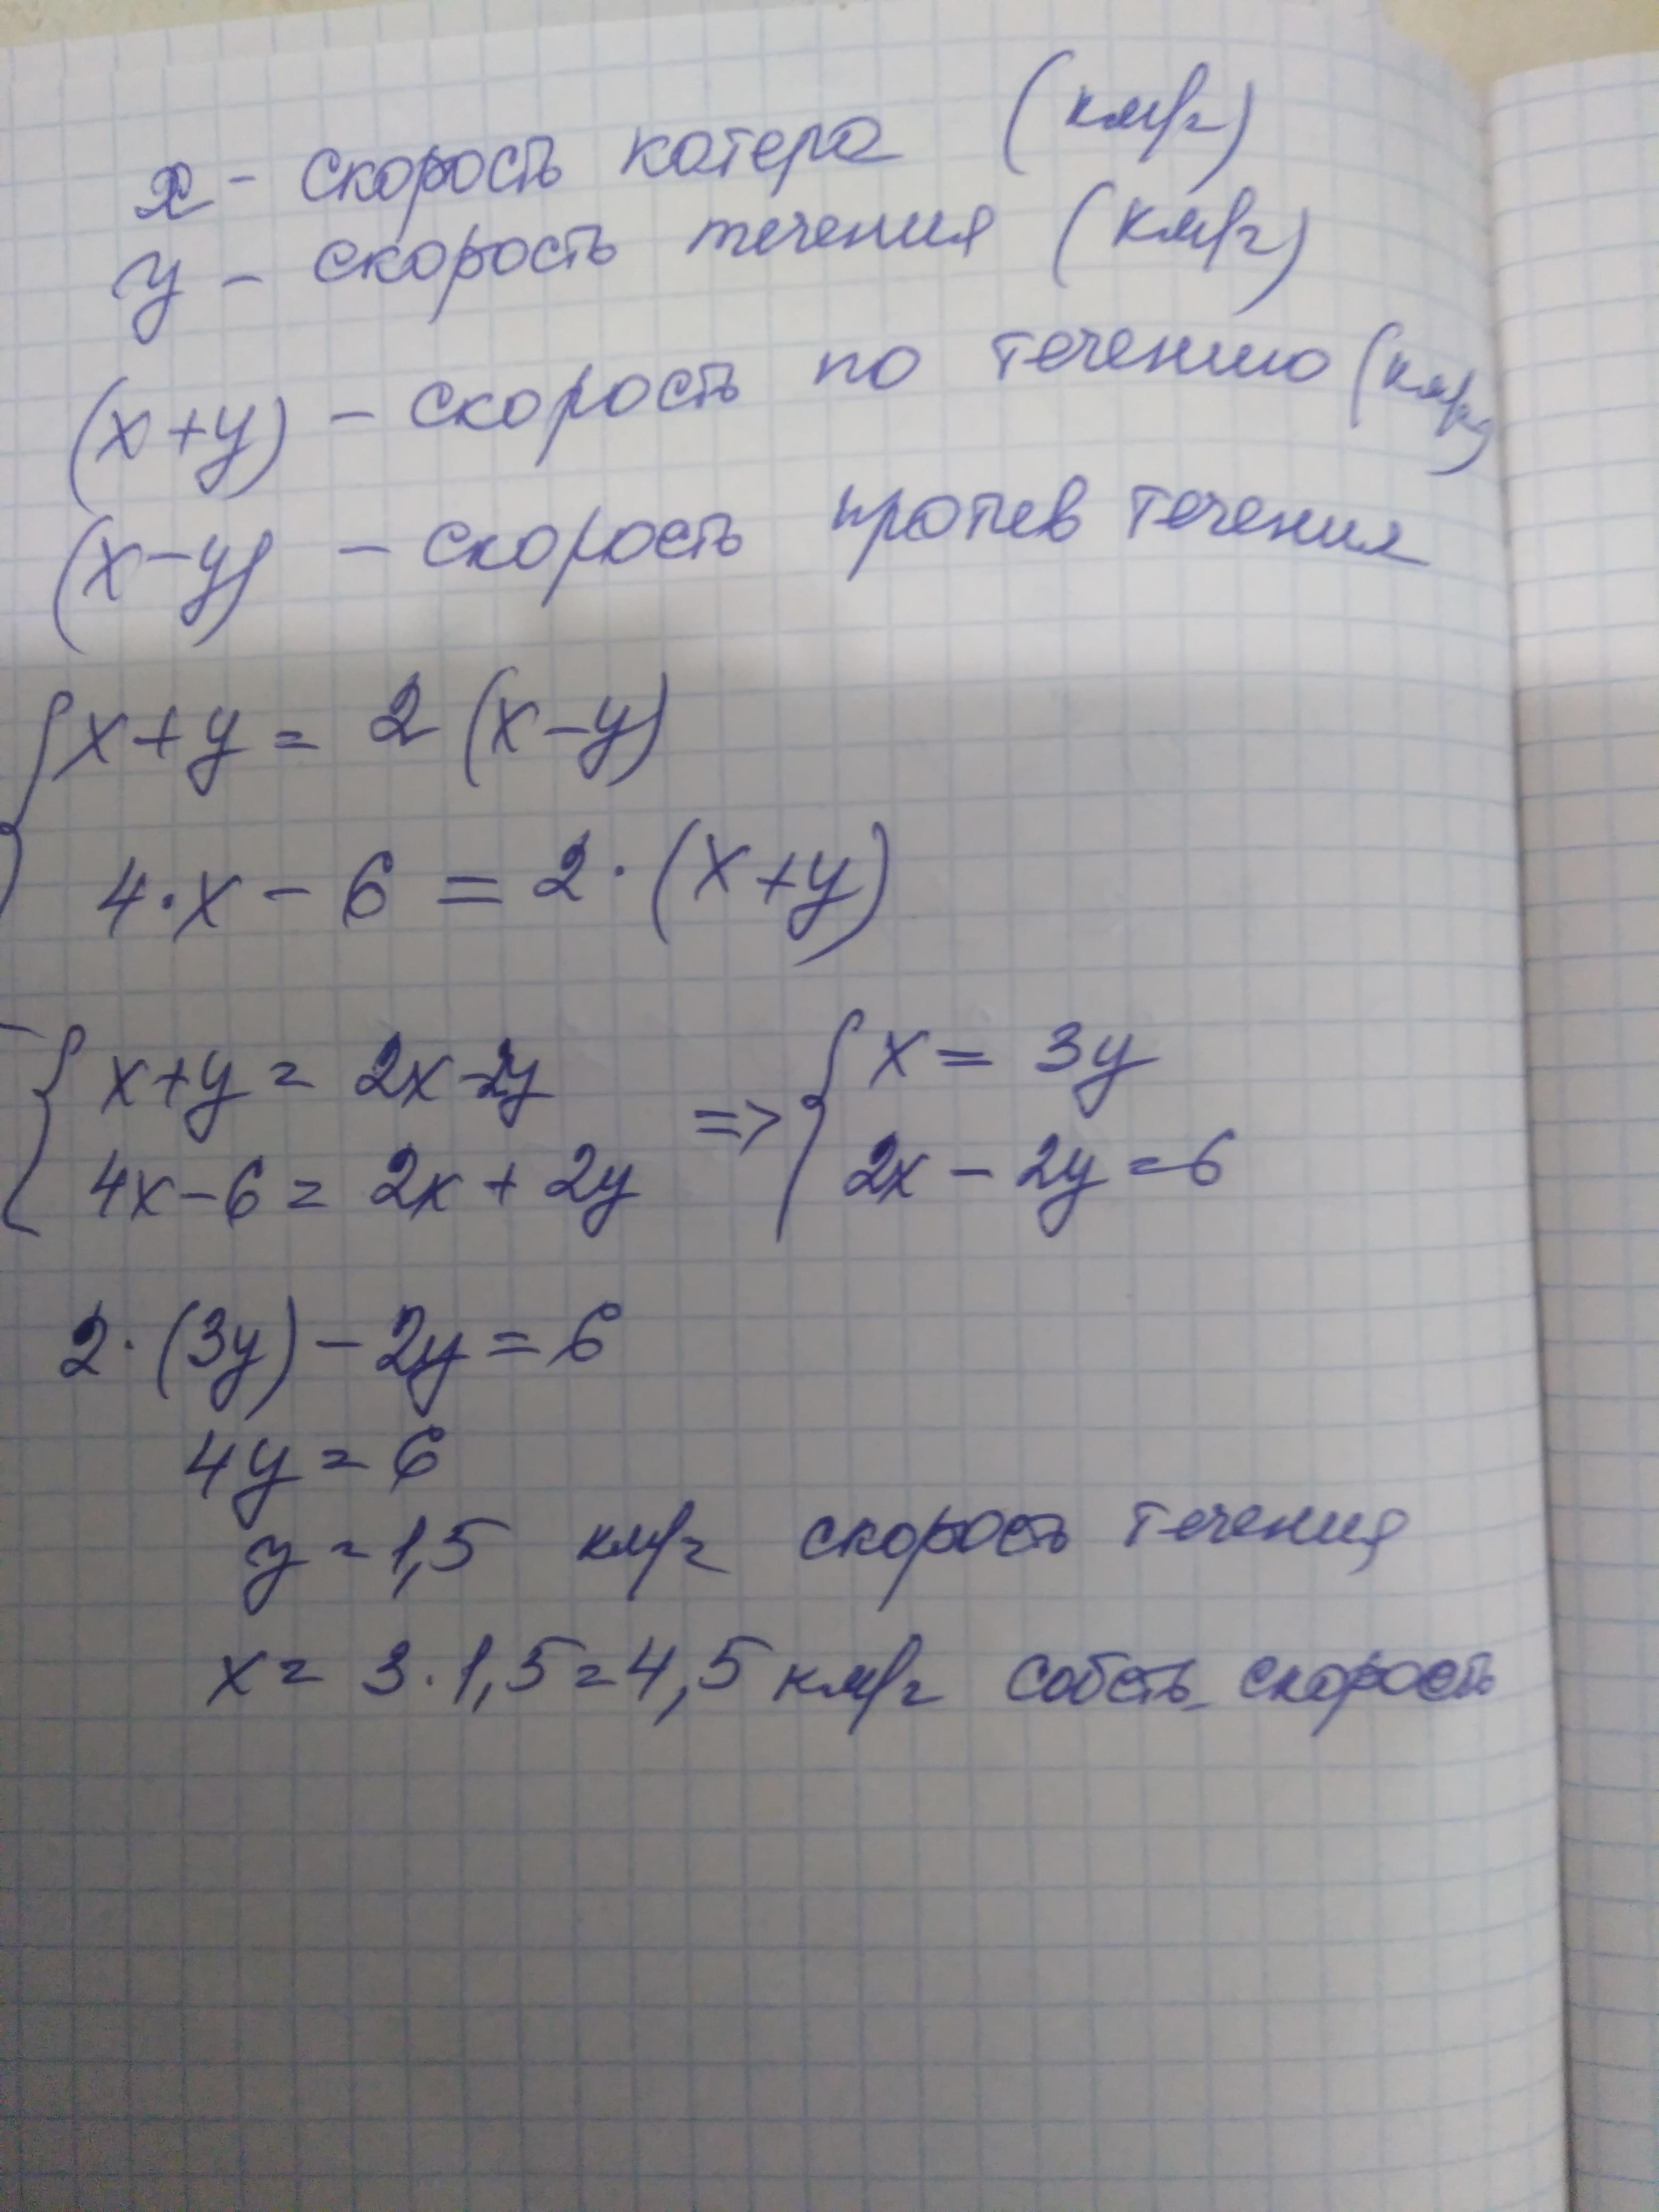 x - скорость катера (км/ч)
y - скорость течения (км/ч)
(x+y) - скорость по течению (км/ч)
(x-y) - скорость против течения
{ x+y = 2 (x-y)
4·x - 6 = 2·(x+y)
{ x+y = 2x-2y => { x = 3y
4x-6 = 2x + 2y 2x - 2y = 6
2·(3y) - 2y = 6
4y = 6
y = 1,5 км/ч скорость течения
x = 3·1,5 = 4,5 км/ч собств. скорость